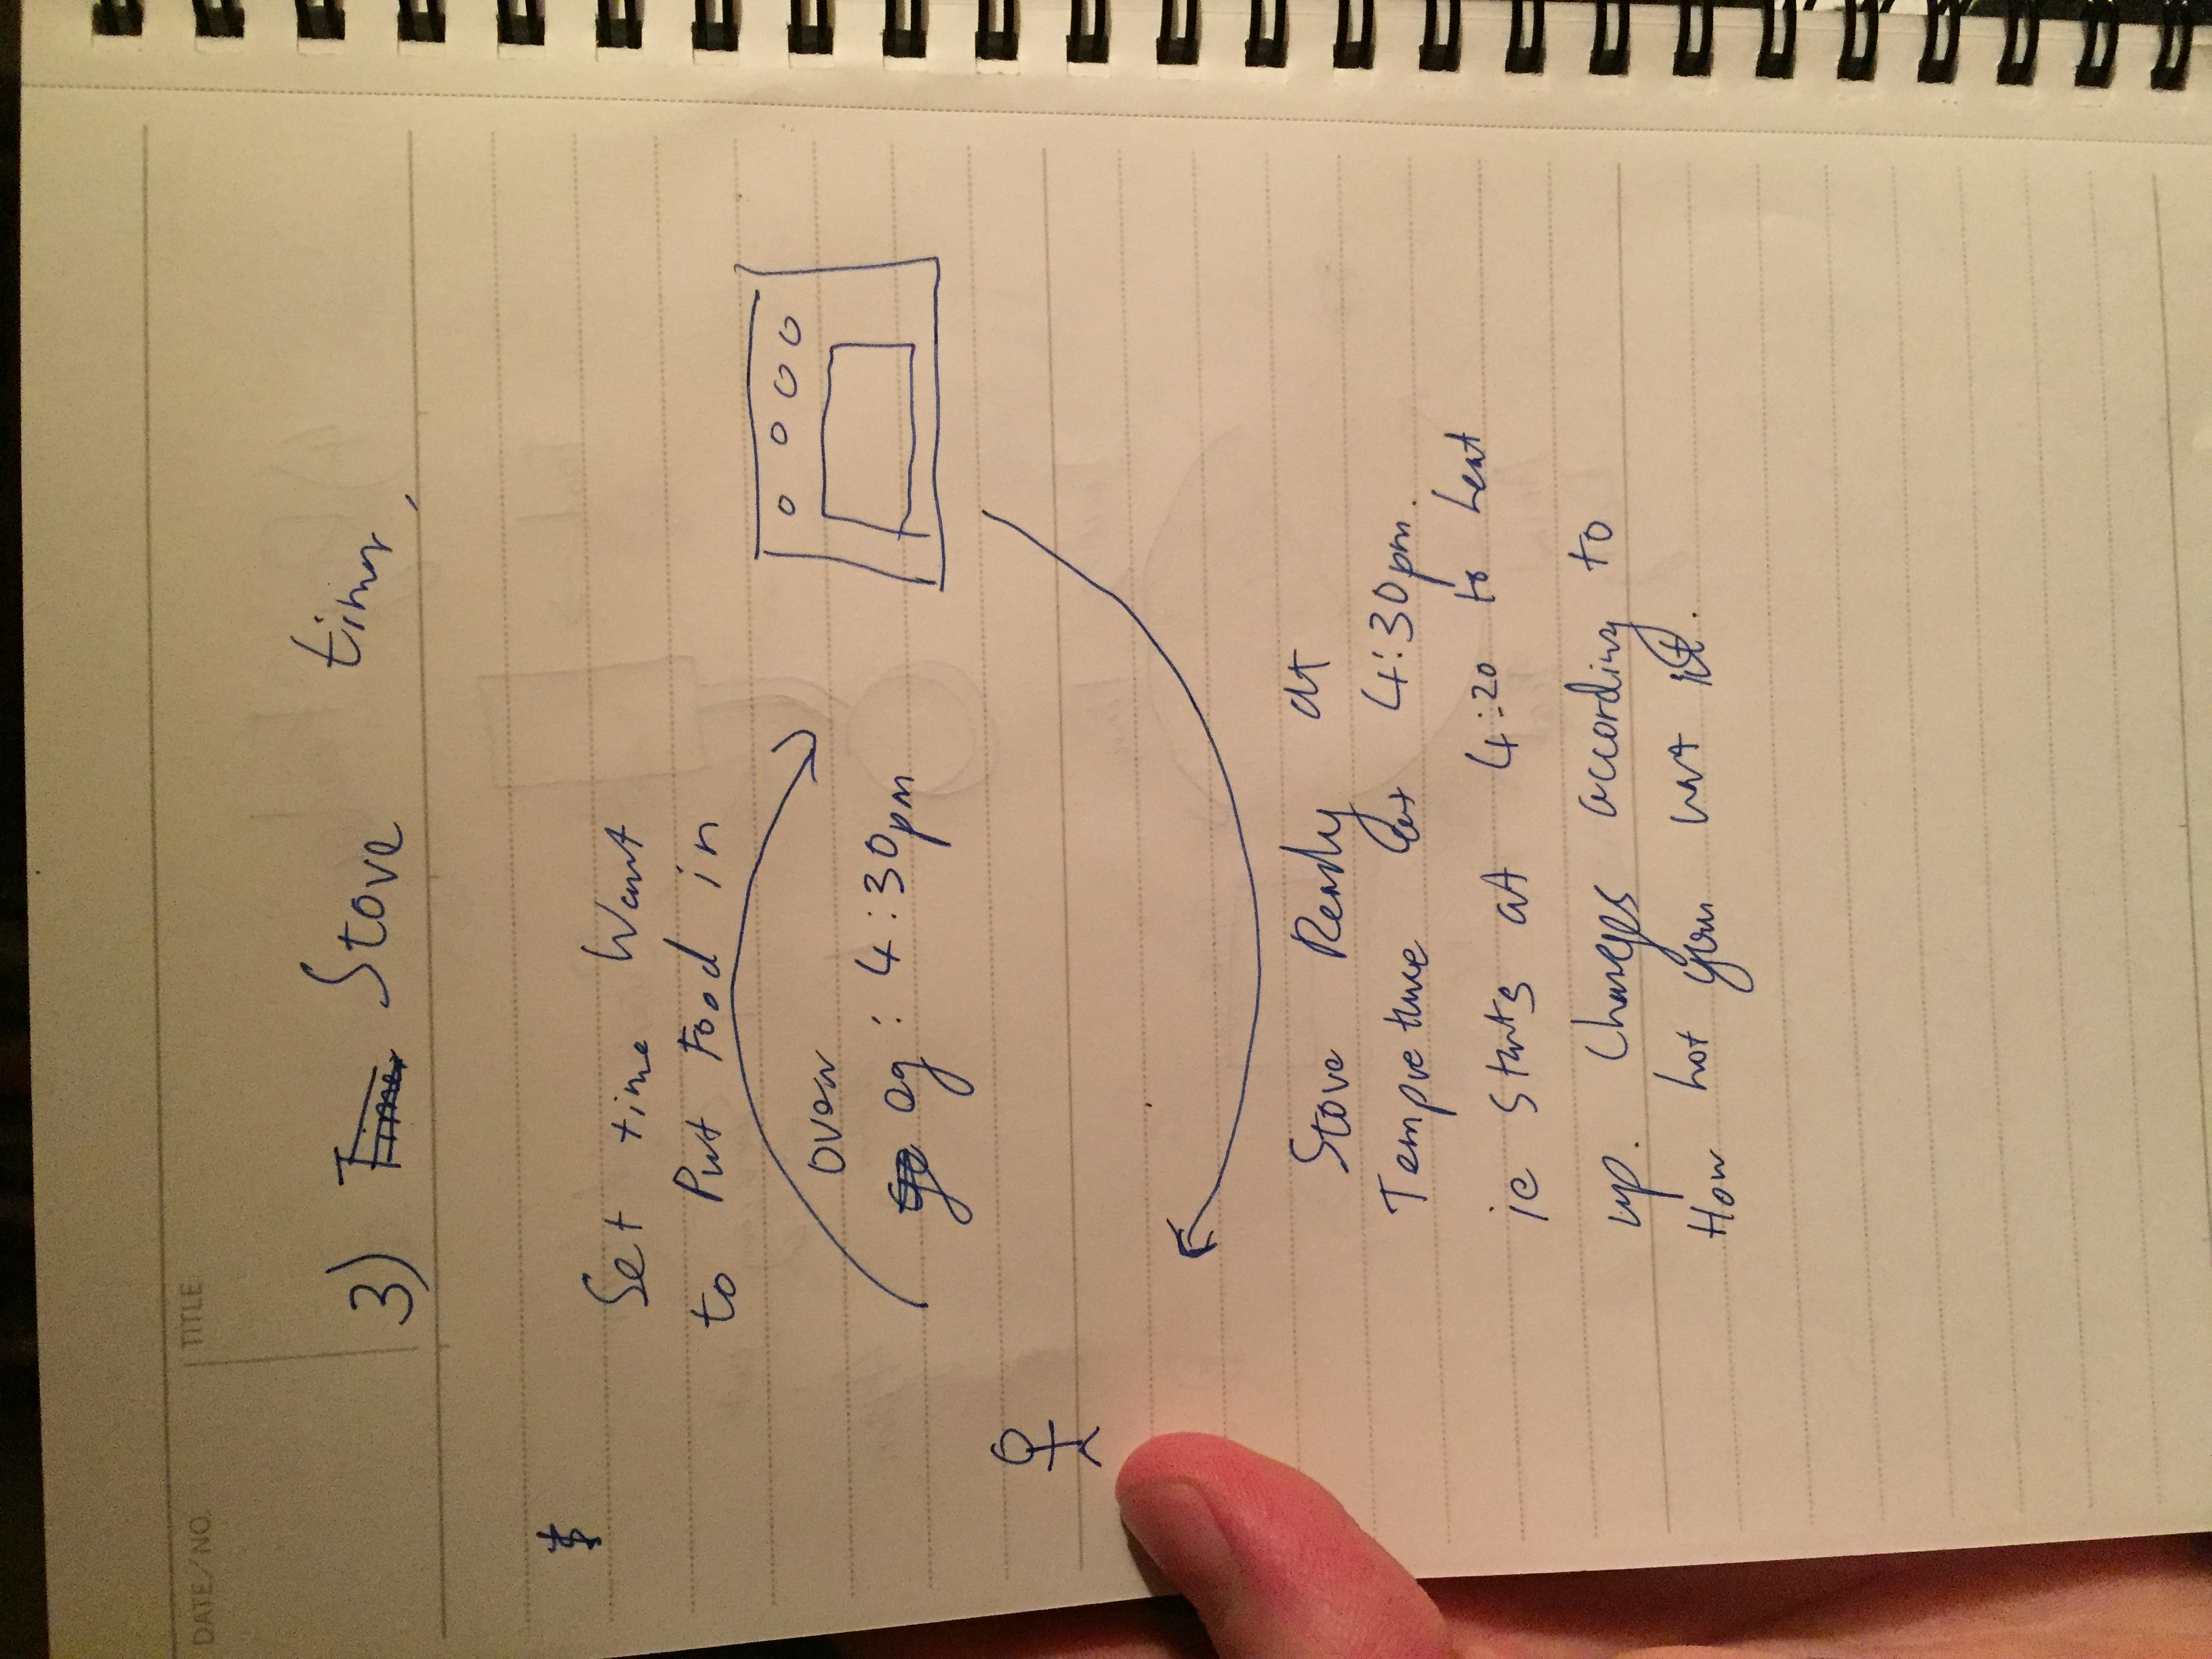 DATE/NO.
TITLE
3) Timer Stove timer,
$
Set time Want
to Put Food in
oven
go eg: 4:30pm
Stove Ready at
Tempreture at 4:30pm.
ie Starts at 4:20 to heat
up. Changes according to
How hot you it.